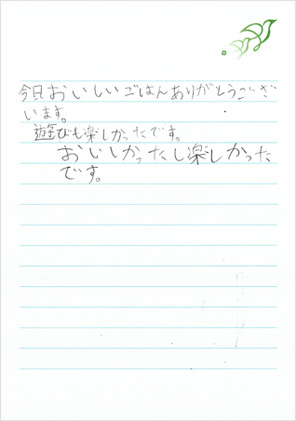 今日おいしいごはんありがとうござ
います。
遊びも楽しかったです。
おいしかったし楽しかった
です。